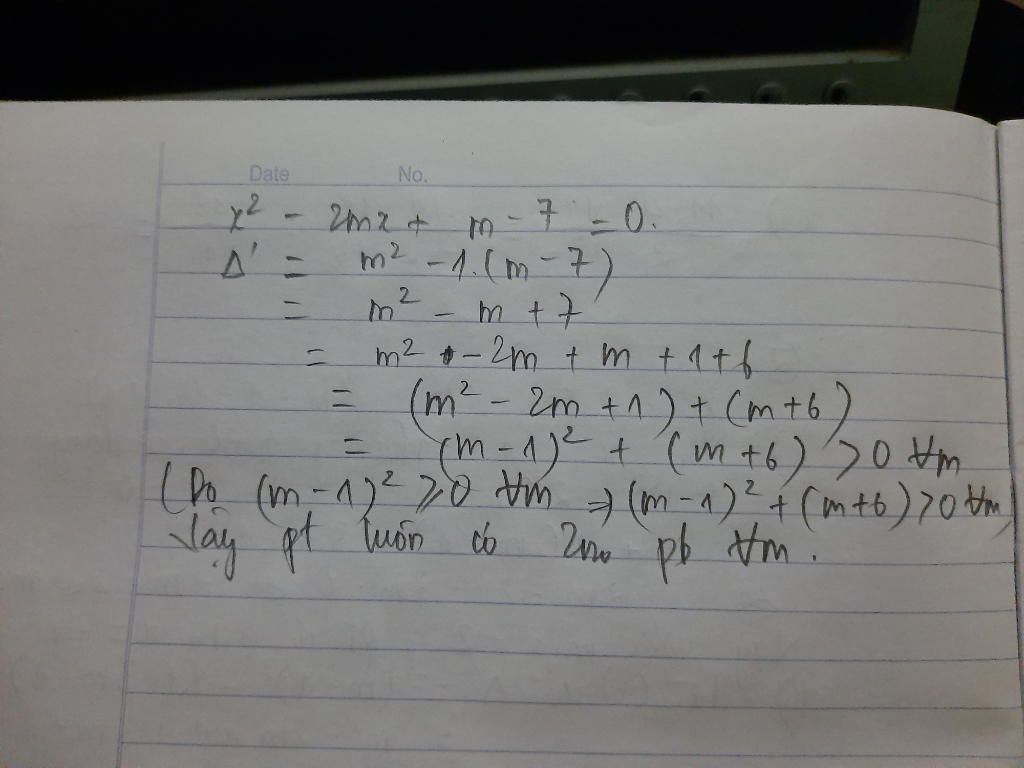 Date No.
x² - 2mx + m - 7 = 0.
Δ' = m² - 1.(m - 7)
= m² - m + 7
= m² - 2m + m + 1 + 6
= (m² - 2m + 1) + (m + 6)
= (m - 1)² + (m + 6) > 0 ∀m
(Do (m - 1)² ⩾ 0 ∀m ⇒ (m - 1)² + (m + 6) > 0 ∀m)
Vậy pt luôn có 2 no pb ∀m.